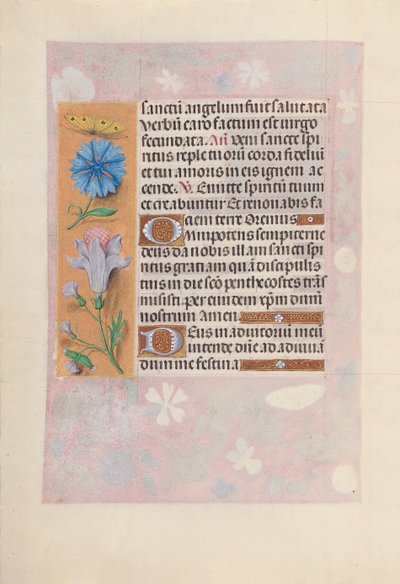 sanctū angelum fuit salutata
verbū caro factum est virgo
fecundata. Añ Veni sancte spi
ritus reple tuorū corda fideliū
et tui amoris in eis ignem ac
cende. V. Emitte spiritū tuum
et creabuntur Et renovabis fa
ciem terre Oremus
Omnipotens sempiterne
deus da nobis illam sancti spi
ritus gratiam quā discipulis
tuis in die scō penthecostes trās
misisti. per eundem xpm dūm
nostrum Amen
Deus in adiutoriū meū
intende dūe ad adiuvā
dum me festina